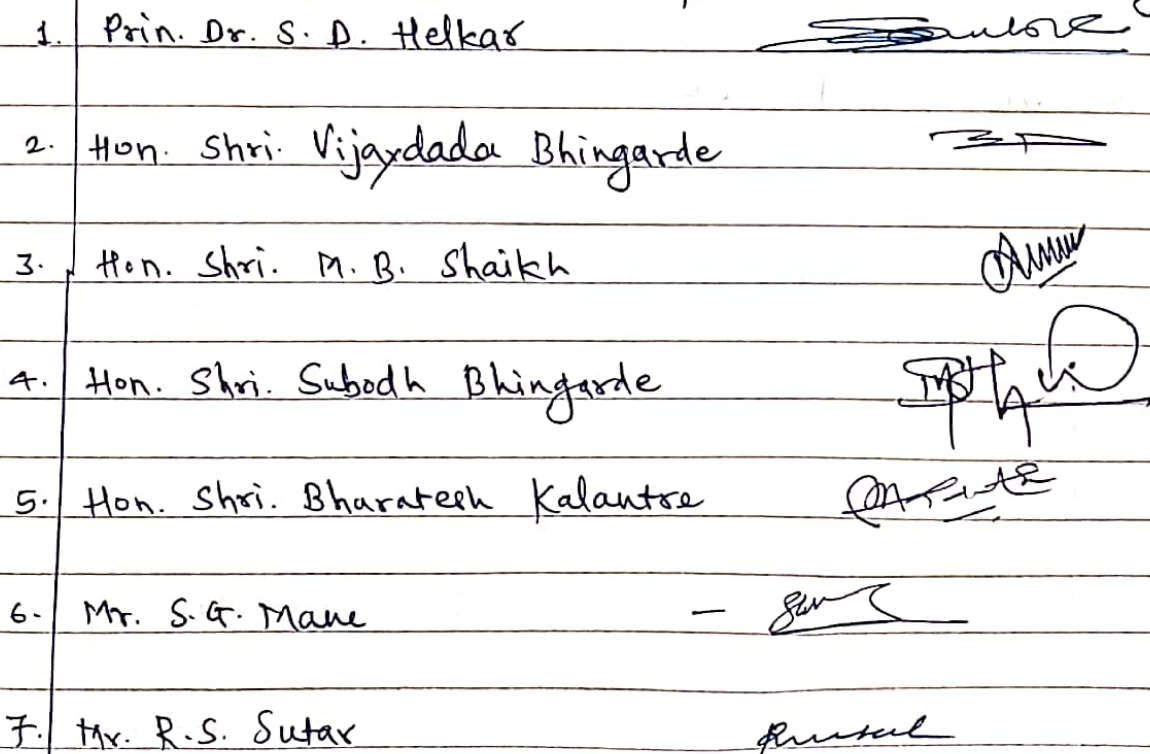 1. Prin. Dr. S. D. Helkar
2. Hon. Shri. Vijaydada Bhingarde
3. Hon. Shri. M. B. Shaikh
4. Hon. Shri. Subodh Bhingarde
5. Hon. Shri. Bharatesh Kalantre
6. Mr. S. G. Mane -
7. Mr. R. S. Sutar